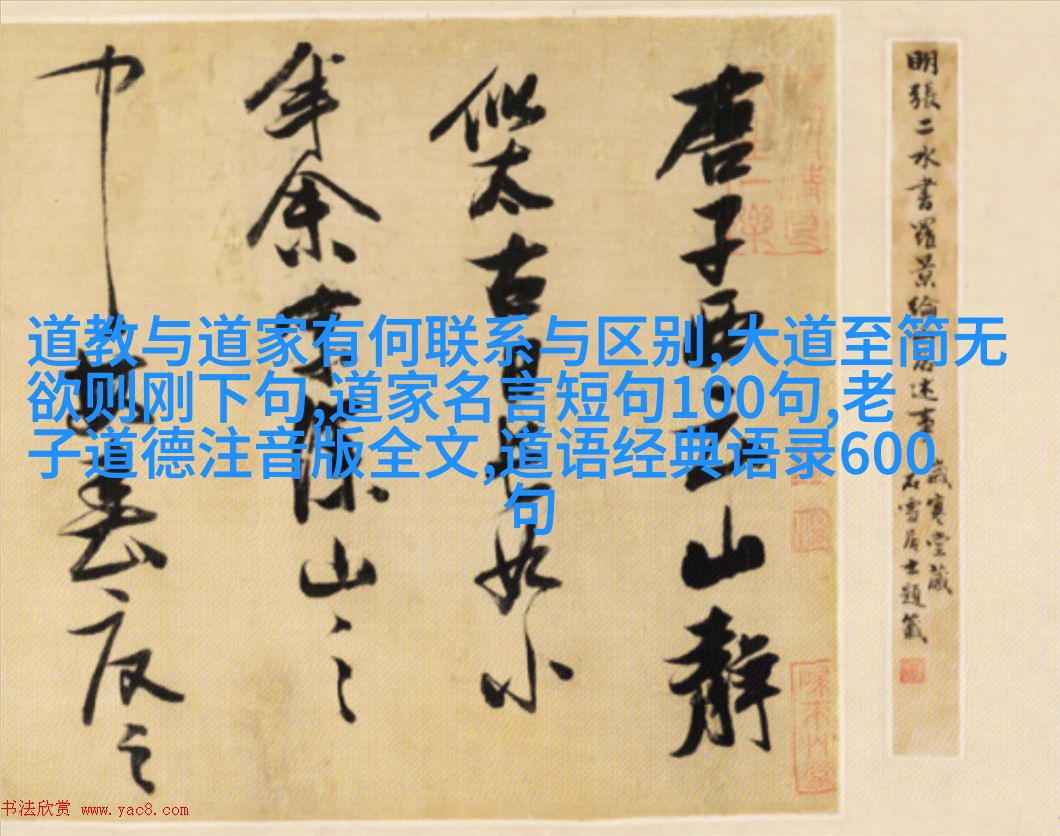 道教与道家有何联系与区别,大道至简无
欲则刚下句,道家名言短句100句,老
子道德注音版全文,道语经典语录600
句
明張二水書羅景綸
歲寒堂藏
石雪居士題籤
唐子西云山靜
似太古日長如小
年余家深山之
中
春夏之
书法欣赏 www.yac8.com